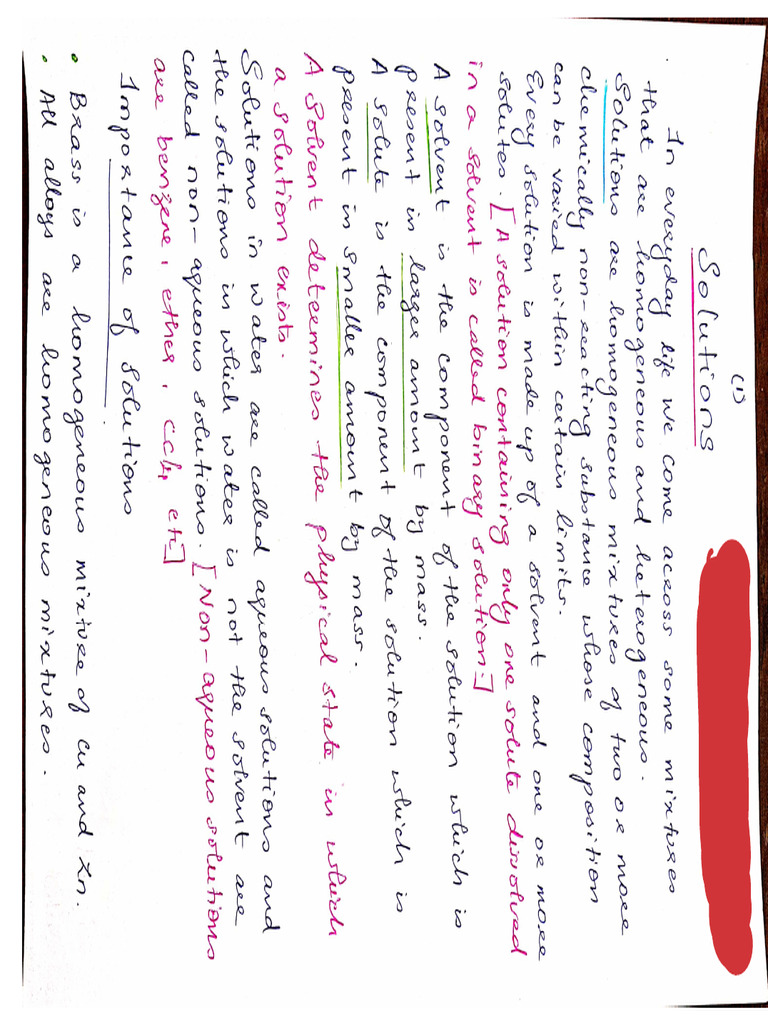 (1)
Solutions
In everyday life we come across some mixtures
that are homogeneous and heterogeneous.
Solutions are homogeneous mixtures of two or more
chemically non-reacting substance whose composition
can be varied within certain limits.
Every solution is made up of a solvent and one or more
solutes. [A solution containing only one solute dissolved
in a solvent is called binary solution.]
A solvent is the component of the solution which is
present in larger amount by mass.
A solute is the component of the solution which is
present in smaller amount by mass.
A Solvent determines the physical state in which
a solution exists.
Solutions in water are called aqueous solutions and
the solutions in which water is not the solvent are
called non-aqueous solutions. [Non-aqueous solutions
are benzene, ether, CCl4, etc]
Importance of Solutions
• Brass is a homogeneous mixture of Cu and Zn.
• All alloys are homogeneous mixtures.